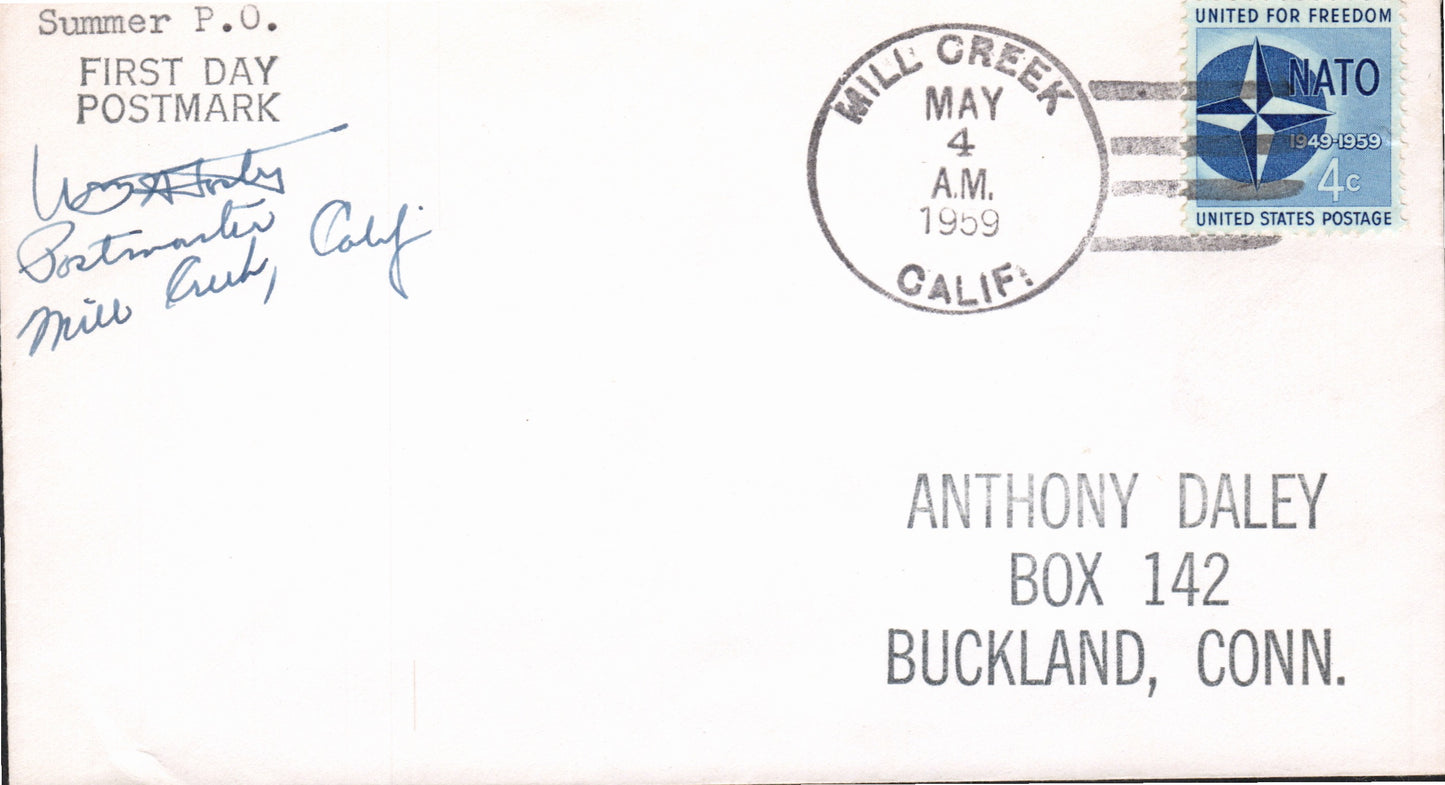 Summer P.O.
FIRST DAY
POSTMARK
Postmaster
Mill Creek, Calif
MILL CREEK
MAY
4
A.M.
1959
CALIF.
UNITED FOR FREEDOM
NATO
1949-1959
4c
UNITED STATES POSTAGE
ANTHONY DALEY
BOX 142
BUCKLAND, CONN.